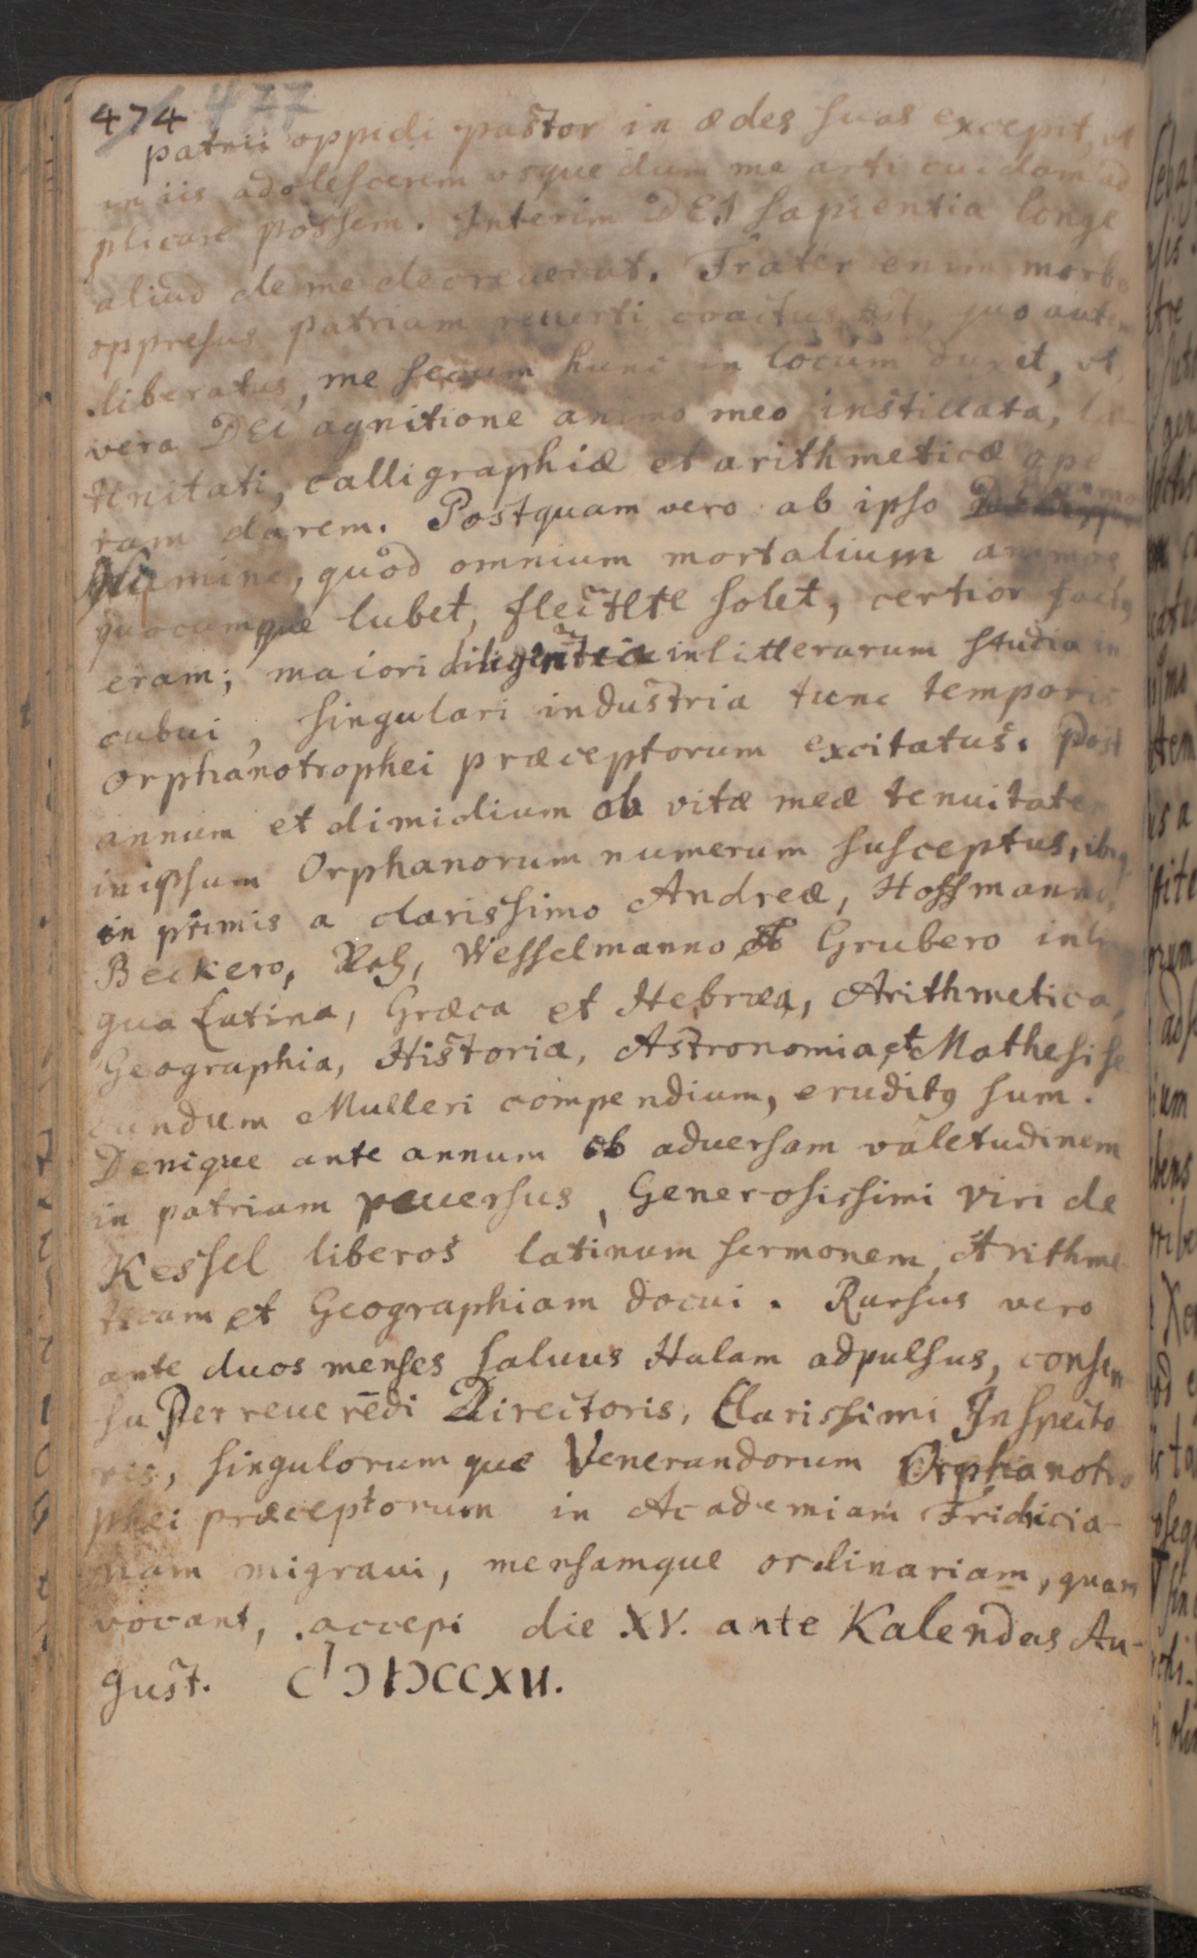 474 477
patrii oppidi pastor in ædes suas excepit, vt
in iis adolescerem vsque dum me arti cuidam ad
plicare possem. Interim DEI sapientia longe
aliud de me decreuerat. Frater enim morbo
oppresus patriam reuerti coactus est, quo autem
liberatus, me secum hunc in locum duxit, vt,
vera DEI agnitione animo meo instillata, la
tinitati, calligraphiæ et arithmeticæ ope
ram darem. Postquam vero ab ipso
Numine, quod omnium mortalium animos
quocumque lubet, flectere solet, certior factus
eram; maiori diligentia in litterarum studia in
cubui, singulari industria tunc temporis
Orphanotrophei præceptorum excitatus. Post
annum et dimidium ob vitæ meæ tenuitatem
in ipsum Orphanorum numerum susceptus, ibiq
in primis a clarissimo Andreæ, Hoffmanno,
Beckero, Wesselmanno et Grubero in lin
gua Latina, Græca et Hebræa, Arithmetica,
Geographia, Historia, Astronomia, et Mathesi se
cundum Mulleri compendium, eruditus sum.
Denique ante annum ob aduersam valetudinem
in patriam reuersus, Generosissimi viri de
Kessel liberos latinum sermonem, Arithme
ticam et Geographiam docui. Rursus vero
ante duos menses saluus Halam adpulsus, consen
su Perreuerēdi Directoris, Clarissimi Inspecto
ris, singulorumque Venerandorum Orphanotro
phei præceptorum in Academiam Fridricia-
nam migraui, mensamque ordinariam, quam
vocant, accepi die XV. ante Kalendas Au-
gust. CIↃIↃCCXVI.